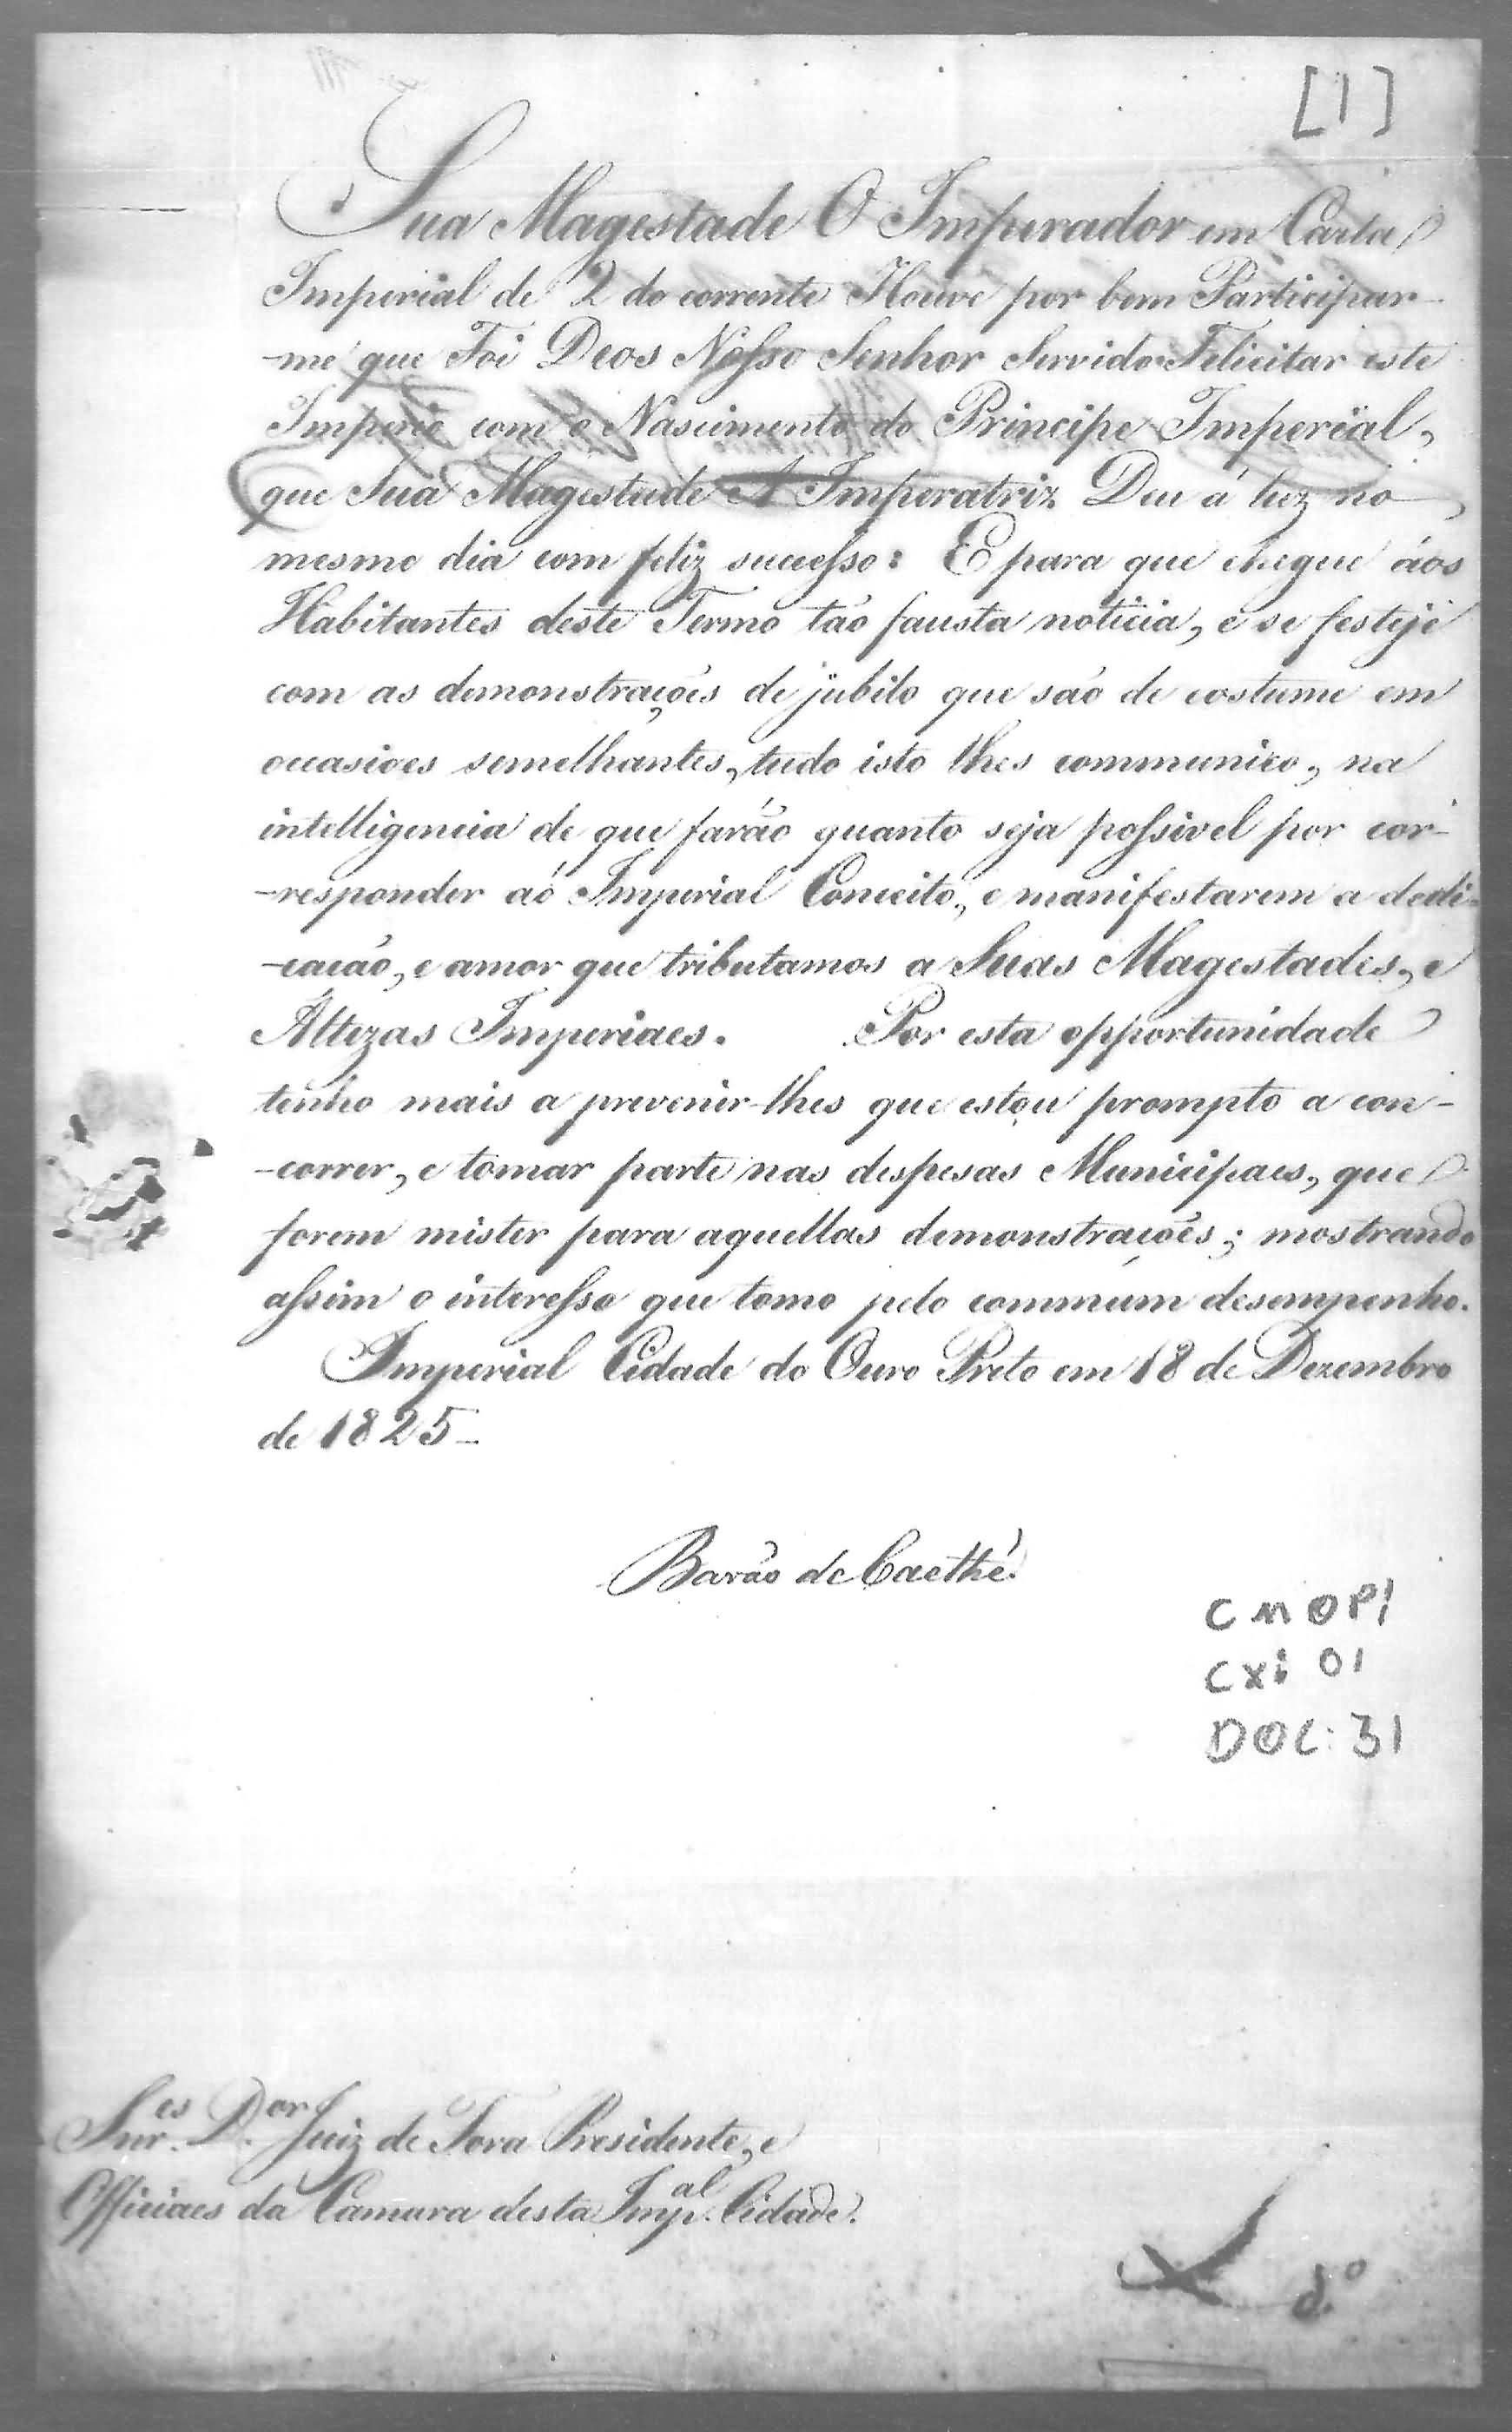 [1]
Sua Magestade O Imperador em Carta
Imperial de 2 do corrente Houve por bem Participar-
-me que Foi Deos Nosso Senhor Servido Felicitar este
Imperio com o Nascimento do Principe Imperial,
que Sua Magestade A Imperatriz Deu á luz no
mesmo dia com feliz successo: E para que chegue áos
Habitantes deste Termo tão fausta noticia, e se festeje
com as demonstrações de jubilo que são de costume em
occasioes semelhantes, tudo isto lhes communico, na
intelligencia de que farão quanto seja possivel por cor-
-responder aó Imperial Conceito, e manifestarem a dedi-
-cacão, e amor que tributamos a Suas Magestades, e
Altezas Imperiaes. Por esta opportunidade
tenho mais a prevenir-lhes que estou prompto a con-
-correr, e tomar parte nas despesas Municipaes, que
forem mister para aquellas demonstrações; mostrando
assim o interesse que tomo pelo commum desempenho.
Imperial Cidade do Ouro Preto em 18 de Dezembro
de 1825-
Barão de Caethé.
CMOP1
CXi 01
DOC: 31
Snr.es D.or Juiz de Fora Presidente, e
Officiaes da Camara desta Imp.al Cidade.
d.o